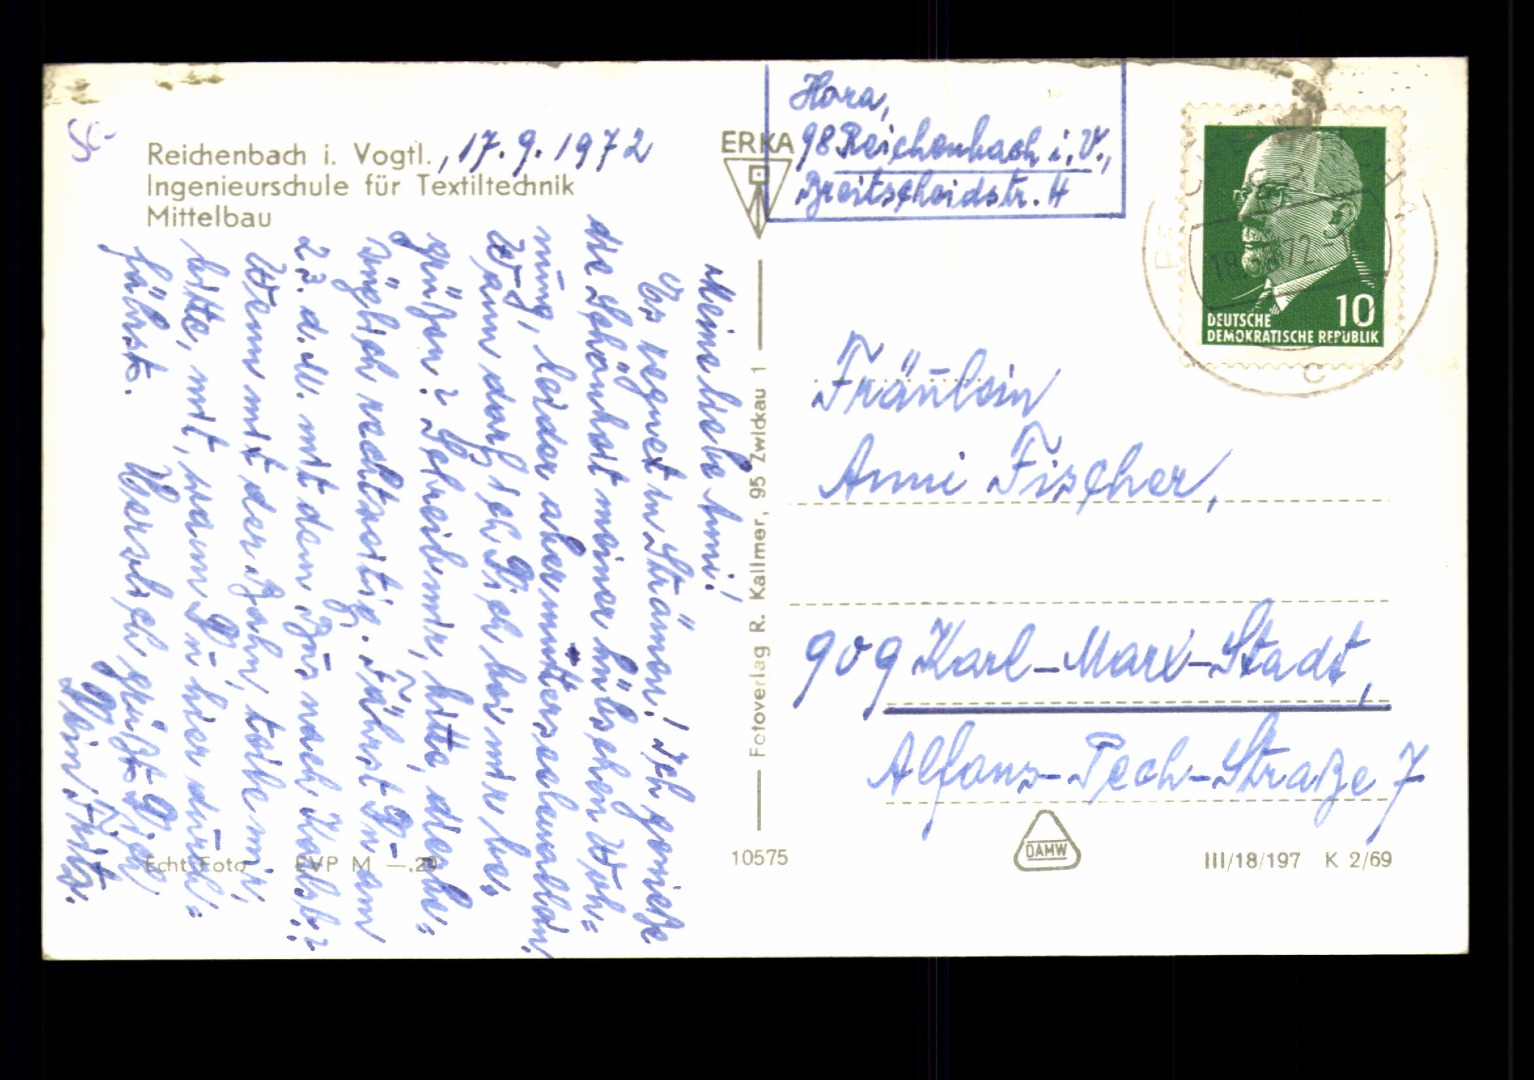 Reichenbach i. Vogtl., 17.9.1972
Ingenieurschule für Textiltechnik
Mittelbau
Meine liebe Anni!
Es regnet in Strömen! Ich genieße
die Schönheit meiner hübschen Woh=
nung, leider aber mutterseelenallein,
Wann darf ich Dich bei mir be,
grüßen? Schreib mir, bitte,
züglich rechtzeitig. Fährst Du am
23. d. M. mit dem Bus nach
Wenn mit der Bahn, teile mir,
bitte, mit, wann Du hier durch=
fährst. Herzlich grüßt Dich
Dein Fritz.
Echt Foto EVP M —,20
ERKA
Fotoverlag R. Kallmer, 95 Zwickau 1
10575
Hora,
98 Reichenbach i. V.,
Breitscheidstr. 4
18 72
C
10
DEUTSCHE
DEMOKRATISCHE REPUBLIK
Fräulein
Anni Fischer,
909 Karl-Marx-Stadt,
Alfons-Pech-Straße 7
DAMW
III/18/197 K 2/69